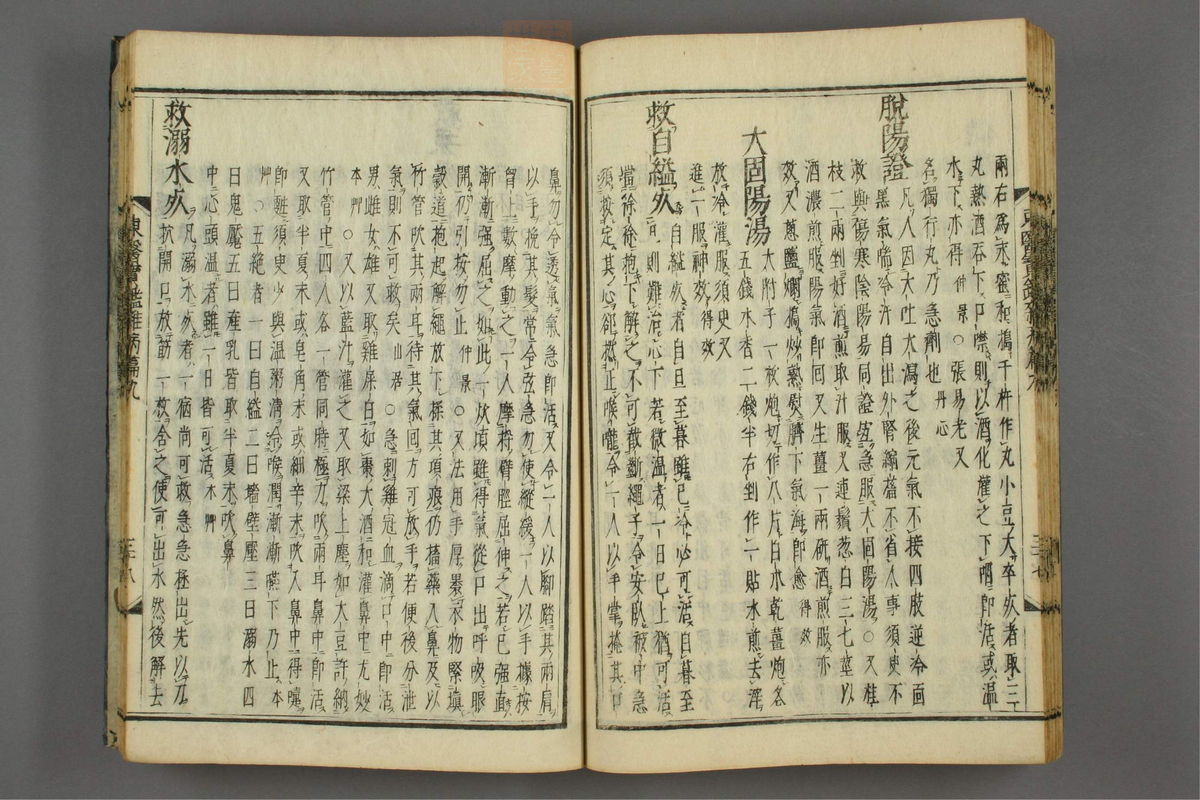 兩右爲末蜜和搗千杵作丸小豆大卒死者取三
丸熱酒呑下口噤則以酒化灌之下咽即活或温
水下亦得仲景○張易老又
名獨行丸乃急劑也丹心
脫陽證凡人因大吐大瀉之後元氣不接四肢逆冷面
黑氣喘冷汗自出外腎縮搐不省人事須臾不
救與傷寒陰陽易同證宜急服大固陽湯○又桂
枝二兩剉好酒煎取汁服又連鬚葱白三七莖以
酒濃煎服陽氣即回又生薑一兩硏酒煎服亦
效又葱鹽爛搗炒熱熨臍下氣海即愈得效
大固陽湯大附子一枚炮切作八片白朮乾薑炮各
五錢木香二錢半右剉作一貼水煎去滓
放冷灌服須臾又
進一服神效得效
救自縊死自縊死者自旦至暮雖已冷必可活自暮至
旦則難治心下若微温者一日已上猶可活
當徐徐抱下解之不可截斷繩子令安臥被中急
須按定其心却撚正喉嚨令一人以手掌掩其口
鼻勿令透氣氣急即活又令一人以脚踏其兩肩
以手挽其髮常令弦急勿使縱緩一人以手據按
胷上數摩動之一人摩捋臂脛屈伸之若已强直
漸漸强屈之如此一炊頃雖得氣從口出呼吸眼
開仍引按勿止仲景○又法用手厚裹衣物緊塡
穀道抱起解繩放下揉其項痕仍搐藥入鼻及以
竹管吹其兩耳待其氣回方可放手若便後分泄
氣則不可救矣山居○急刺雞冠血滴口中即活
男雌女雄又取雞屎白如棗大酒和灌鼻中尤妙
本艸○又以藍汁灌之又取梁上塵如大豆許納
竹管中四人各一管同時極力吹兩耳鼻中即活
又取半夏末或皂角末或細辛末吹入鼻中得嚔
即甦須臾少與温粥淸冷喉潤漸漸嚥下乃止本
艸○五絶者一曰自縊二曰墻壁壓三曰溺水四
曰鬼魘五曰産乳皆取半夏末吹鼻
中心頭温者雖一日皆可活本艸
救溺水死凡溺水死者一宿尚可救急急極出先以刀
中抉開口放筯一枚令含之使可出水然後解去
東醫寶鑑雜病篇九
三十七
東醫寶鑑雜病篇九
三十八